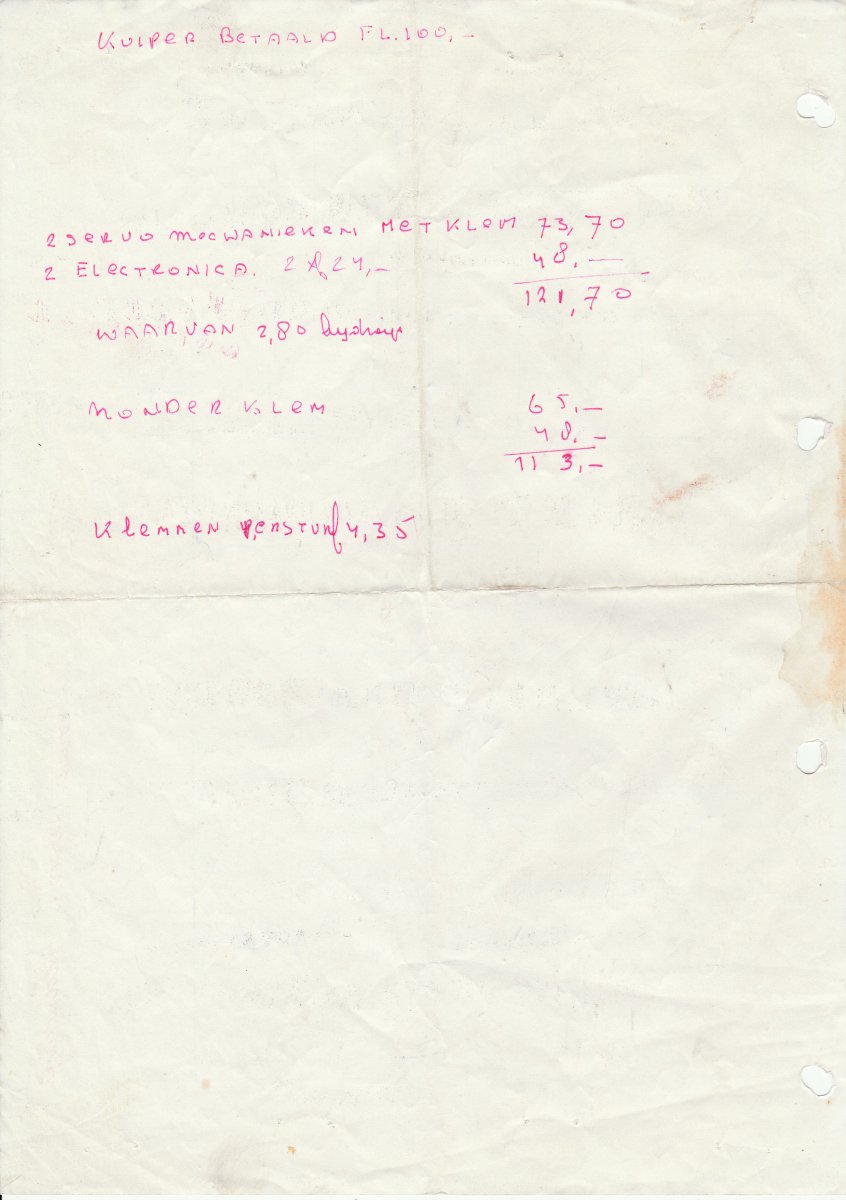 KUIPER BETAALD FL.100,-
2 SERVO MECHANIEKEN MET KLEM 73,70
2 ELECTRONICA. 2 A 24,- 48.—
121,70
WAARVAN 2,80
ZONDER KLEM 65,—
48.-
113,-
KLEMMEN PER STUK 4,35